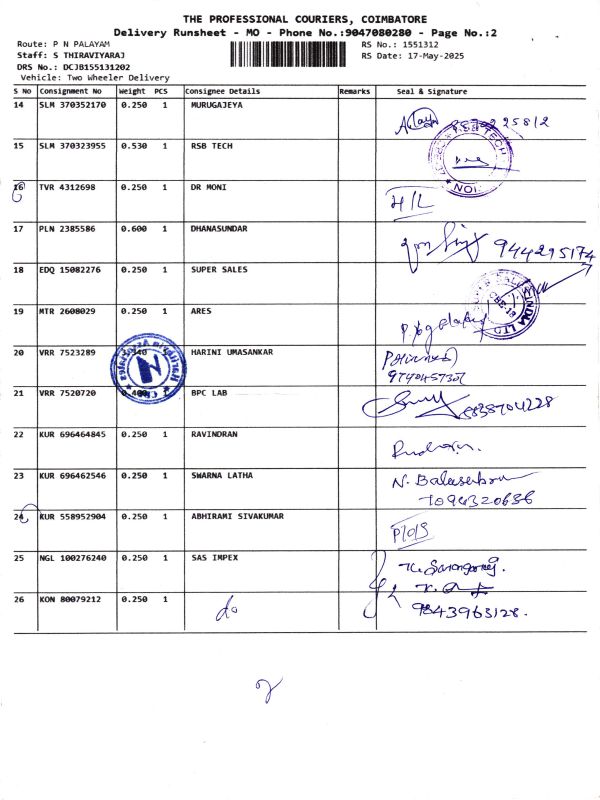 THE PROFESSIONAL COURIERS, COIMBATORE
Delivery Runsheet - MO - Phone No.:9047080280 - Page No.:2
Route: P N PALAYAM RS No.: 1551312
Staff: S THIRAVIYARAJ RS Date: 17-May-2025
DRS No.: DCJB155131202
Vehicle: Two Wheeler Delivery
S No Consignment No Weight PCS Consignee Details Remarks Seal & Signature
14 SLM 370352170 0.250 1 MURUGAJEYA
15 SLM 370323955 0.530 1 RSB TECH
16 TVR 4312698 0.250 1 DR MONI H/L
17 PLN 2385586 0.600 1 DHANASUNDAR 944295174
18 EDQ 15082276 0.250 1 SUPER SALES
19 MTR 2608029 0.250 1 ARES
20 VRR 7523289 HARINI UMASANKAR
21 VRR 7520720 BPC LAB 8838704228
22 KUR 696464845 0.250 1 RAVINDRAN
23 KUR 696462546 0.250 1 SWARNA LATHA
24 KUR 558952904 0.250 1 ABHIRAMI SIVAKUMAR
25 NGL 100276240 0.250 1 SAS IMPEX
26 KON 80079212 0.250 1 do 9843963128.